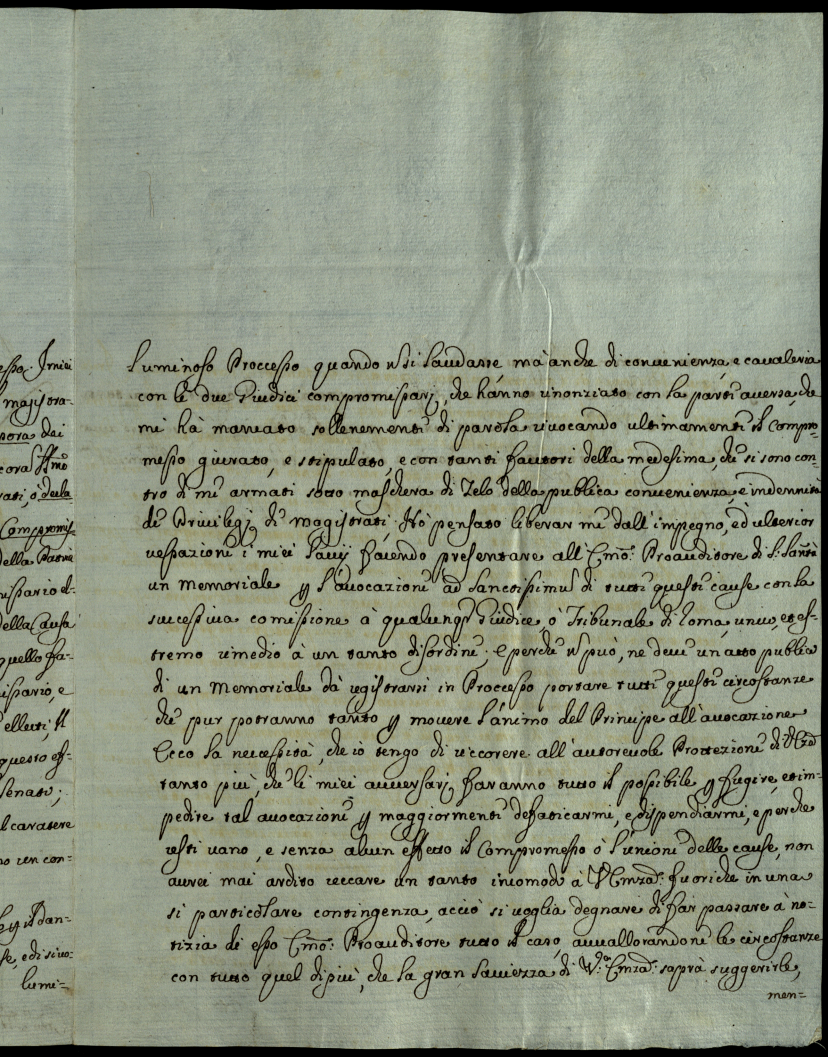 esso. I miei
magistra-
nora dei
cora
vati, ò della
Compromis-
della Patria
issario el-
della Causa
quello fa-
issario, e
eletti, il
questo ef-
Senato;
l carattere
no un con-
il dan-
se, e di si vo-
lumi-
luminoso Proccesso quando si laudasse, mà anche di convenienza, e cavaleria
con li due Giudici compromissarj, che hánno rinonziato con la parte aversa, che
mi hà mancato sollenemente di parola rivocando ultimamente il Compro-
messo giurato, e stipulato, e con tanti fautori della medesima, che si sono con-
tro di me armati sotto maschera di Zelo della publica convenienza, e indennità
de Privilegj de magistrati. Hò pensato liberar me dall'impegno, ed ulterior
vessazione i miei Savij facendo presentare all'Emo: Proauditore di S: Santità
un Memoriale p l'avocazione ad Sanctissimum di tutte queste cause con la
successiva comissione à qualunq Giudice, ò Tribunale di Roma, unico, et es-
tremo rimedio à un tanto disordine; E perche n si può, ne deve un atto publico
di un Memoriale dà registrarsi in Proccesso portare tutte queste circostanze
che pur potranno tanto p movere l'animo del Principe all'avocazione
Ecco la necessità, che io tengo di riccorere all'autorevole Prottezione di V Emza
tanto più, che li miei aversarj faranno tutto il possibile p fugire, et im-
pedire tal avocazione p maggiormente deffaticarmi, e dispendiarmi, e perche
resti vano, e senza alcun effetto il Compromesso ò l'unione delle cause, non
avrei mai ardito reccare un tanto incomodo à V Emza: fuori che in una
si particolare contingenza, acciò si voglia degnare di far passare à no-
tizia di esso Emo: Proauditore tutto il caso, avvallorandone le circostanze
con tutto quel di più, che la gran Saviezza di Vra Emza: saprà suggerirle,
men-